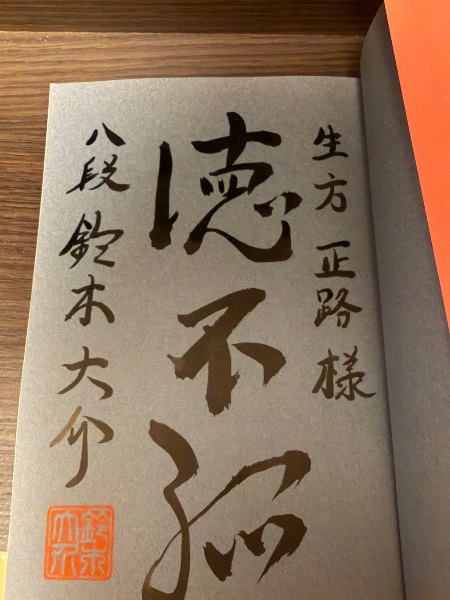 生方正路様
徳不孤
八段 鈴木大介
鈴木大介